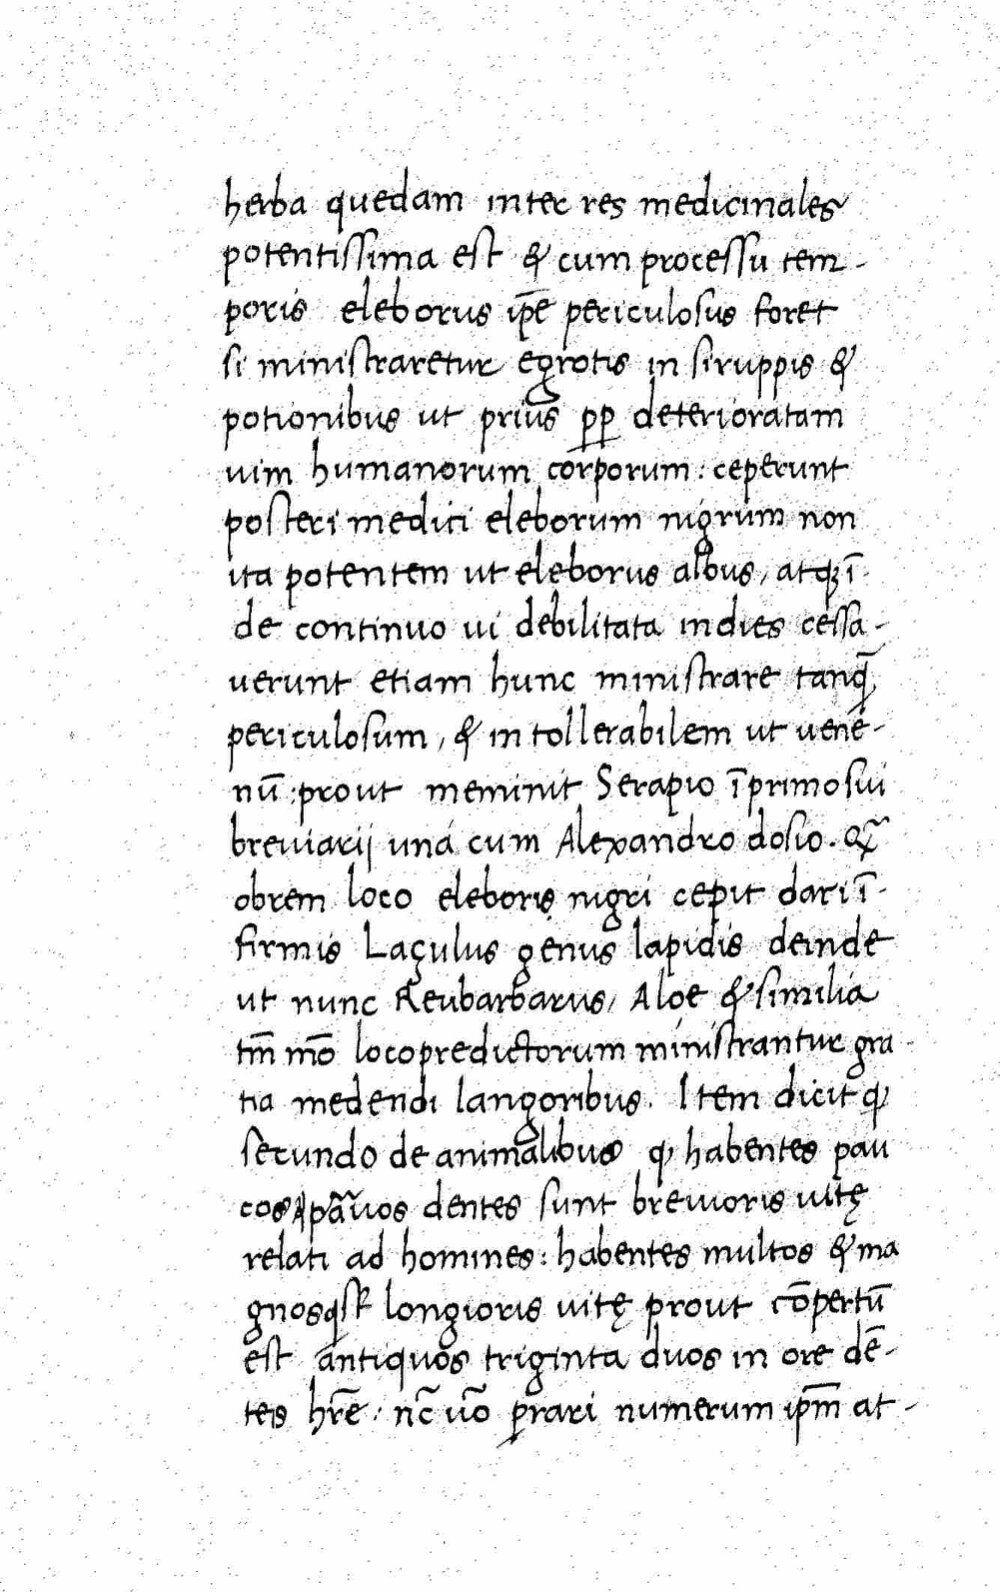 herba quedam inter res medicinales
potentissima est & cum processu tem-
poris eleborus ip̄e periculosus foret
si ministraretur egrotis in siruppis &
potionibus ut prius pp deterioratam
uim humanorum corporum: ceperunt
posteri medici eleborum nigrum non
ita potentem ut eleborus albus, atqꝫ ī-
de continuo ui debilitata indies cessa-
uerunt etiam hunc ministrare tanq̄
periculosum, & intollerabilem ut vene-
nū: prout meminit Serapio ī primo sui
breuiarij unà cum Alexandro dosio. Q̄
obrem loco eleboris nigri cepit dari ī-
firmis Laçulus genus lapidis deinde
ut nunc Reubarbarus, Aloe & similia
tm̄ mō loco predictorum ministrantur gra-
tia medendi langoribus. Item dicit ꝙ
secundo de animalibus ꝙ habentes pau
cos dentes sunt breuioris uitę
relati ad homines: habentes multos & ma
gnosqꝫ longioris uitę prout cōpertū
est antiquos triginta duos in ore dē-
tes hr̄e: nc̄ uō ꝑrari numerum ip̄m at-